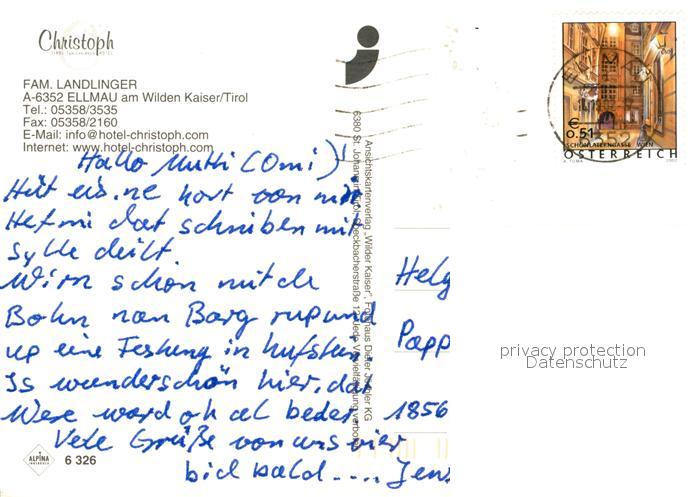 Christoph
FAM. LANDLINGER
A-6352 ELLMAU am Wilden Kaiser/Tirol
Tel.: 05358/3535
Fax: 05358/2160
E-Mail: info@hotel-christoph.com
Internet: www.hotel-christoph.com
Hallo Mutti (Omi)!
Hüt eis.ne kort von mir.
Hef mi dat schriuben mit
Sylke deilt.
Wirn schon mit de
Bohn nan Barg rup und
up eine Festung in Kufstein
Is wunderschön hier, dat
Were ward ok al beder
Vele Grüße von uns vier
bid bald.... Jens
Ansichtskartenverlag „Wilder Kaiser“, Fotohaus Dieter Jöchler KG
6380 St. Johann in Tirol, Speckbacherstraße 12, Jede Vervielfältigung verboten
ALPINA
6 326
Helg
Papp
1856
ELLMAU
6352
€
0,51
SCHÖNLATERNGASSE WIEN
ÖSTERREICH
A. TUMA
2002
privacy protection
Datenschutz